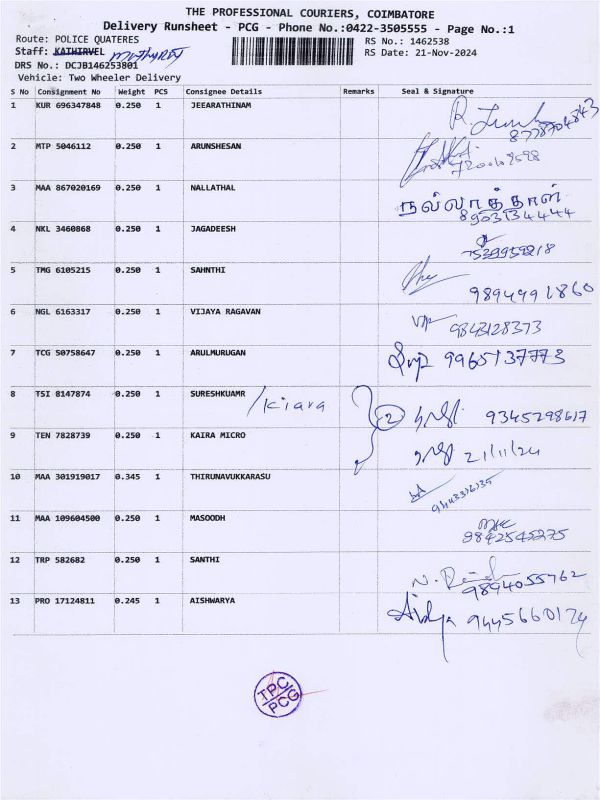 THE PROFESSIONAL COURIERS, COIMBATORE
Delivery Runsheet - PCG - Phone No.:0422-3505555 - Page No.:1
Route: POLICE QUATERES
RS No.: 1462538
Staff: KATHIRVEL
RS Date: 21-Nov-2024
DRS No.: DCJB146253801
Vehicle: Two Wheeler Delivery
S No Consignment No Weight PCS Consignee Details Remarks Seal & Signature
1 KUR 696347848 0.250 1 JEEARATHINAM
2 MTP 5046112 0.250 1 ARUNSHESAN
3 MAA 867020169 0.250 1 NALLATHAL நல்லாத்தாள்
8903134444
4 NKL 3460868 0.250 1 JAGADEESH
7539959218
5 TMG 6105215 0.250 1 SAHNTHI
9894991860
6 NGL 6163317 0.250 1 VIJAYA RAGAVAN 9843128373
7 TCG 50758647 0.250 1 ARULMURUGAN 9965137773
8 TSI 8147874 0.250 1 SURESHKUAMR /Kiara 2 9345298617
9 TEN 7828739 0.250 1 KAIRA MICRO 21/11/24
10 MAA 301919017 0.345 1 THIRUNAVUKKARASU
9443316135
11 MAA 109604500 0.250 1 MASOODH
9842545275
12 TRP 582682 0.250 1 SANTHI
9894055762
13 PRO 17124811 0.245 1 AISHWARYA 9445660174
TPC/
PCG